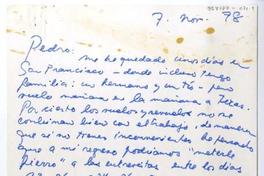 7. Nov. 98
Pedro: me he quedado unos días en
San Francisco — donde incluso tengo
familia: un hermano y un tío — pero
vuelo mañana en la mañana a Texas.
Por cierto los vuelos y revuelos no me
combinan bien con el trabajo, de manera
que si no tienes inconvenientes he pensado
que a mi regreso podríamos "meterle
fierro" a las entrevistas entre los días